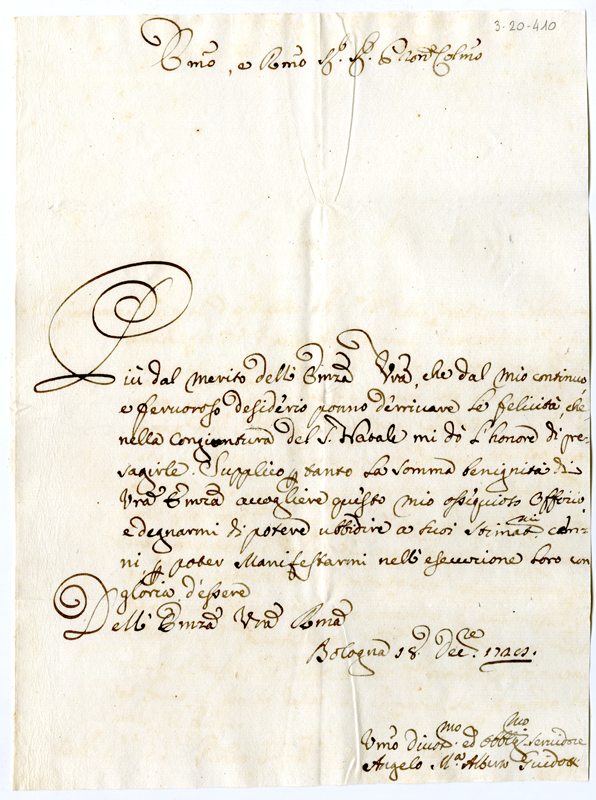 3-20-410
Emo, e Rmo Sig.r Sig.r Pron Colmo
Più dal merito dell'Emza Vra, che dal mio continuo
e fervoroso desiderio ponno derrivare le felicità che
nella congiuntura del S. Natale mi dò l'honore di pre-
sagirle. Supplico p tanto la somma benignità di
Vra Emza accogliere questo mio ossequioso Offizio
e degnarmi di potere ubbidire a suoi Stimat.mi cen-
ni, p poter Manifestarmi nell'esecuzione loro con
gloria d'essere
Dell'Emza Vra Rma
Bologna 18 Dec.re
Vmo divot.mo ed obblig.mo Servidore
Angelo M.a Guidotti